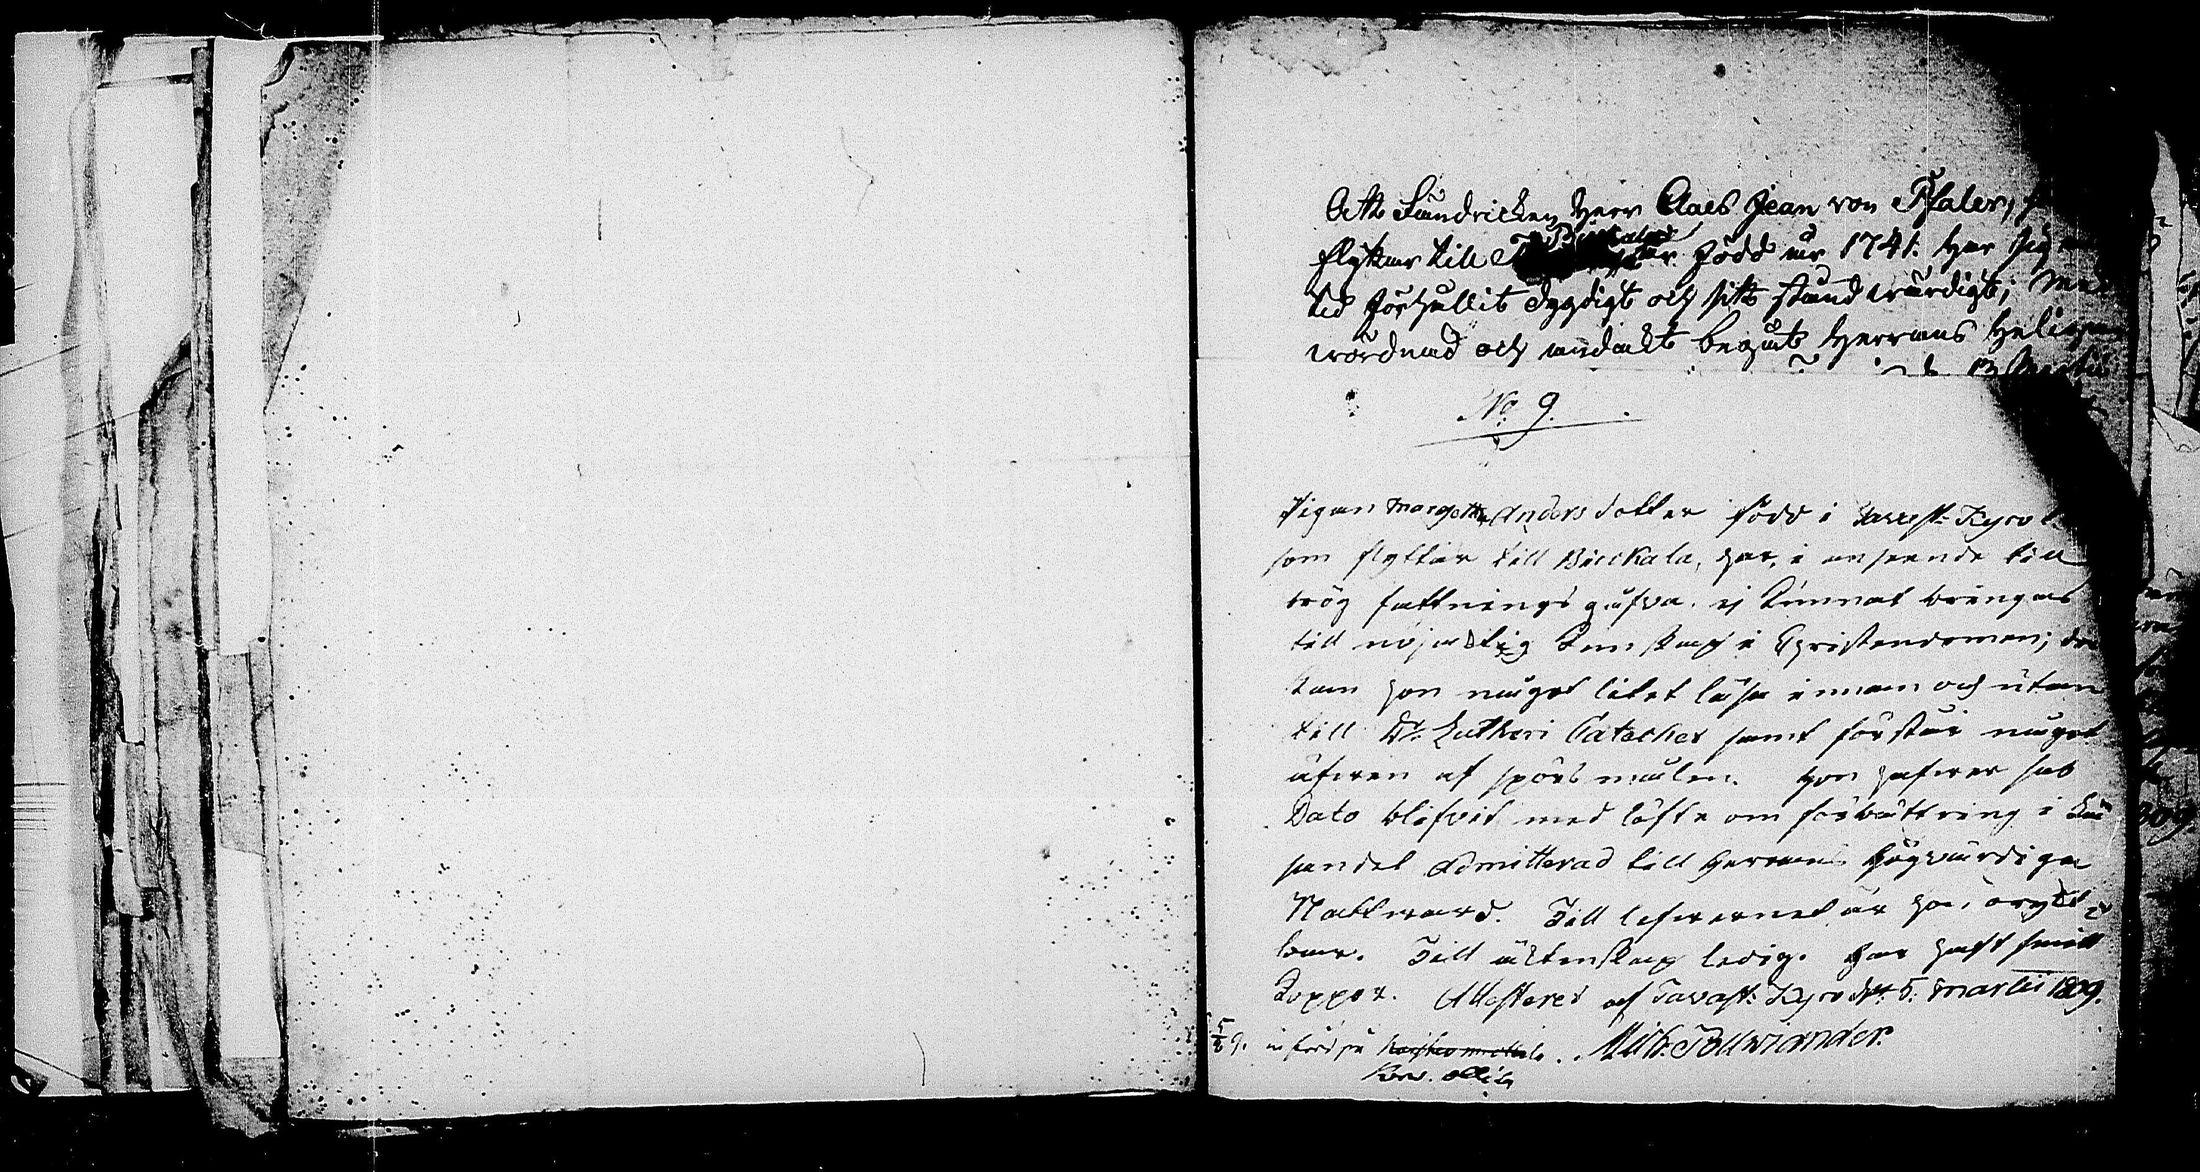 Att Fändricken Herr Claes Jean von Pfaler,
flyttar till Birkala är född år 1741. Har sig
tid förhållit dygdigt och sitt stånd värdigt; Med
vördnad och andakt begått Herrans Helige
13 Martii
No 9.
Pigan Margetha Andersdotter född i Tavast: Kyro
som flyttar till Birckala, har, i anseende till
trög fattnings gåfva ej kunnat bringas
till nöjaktig kunskap i Christendomen; dock
kan hon något litet läsa innan och utan
till Dr. Lutheri Cateches samt förstår något
äfven af spörsmålen. Hon hafver sub
Dato blifvit med löfte om förbättring i kun
handel admitterad till Herrans högvärdiga
Nattvard. Till lefvernet är hon oryckt
bar. Till äktenskap ledig. Har haft små
koppor. Attesterer af Tavast: Kyro d. 5. Martii 1809.
införd på
Mich: Pollviander.